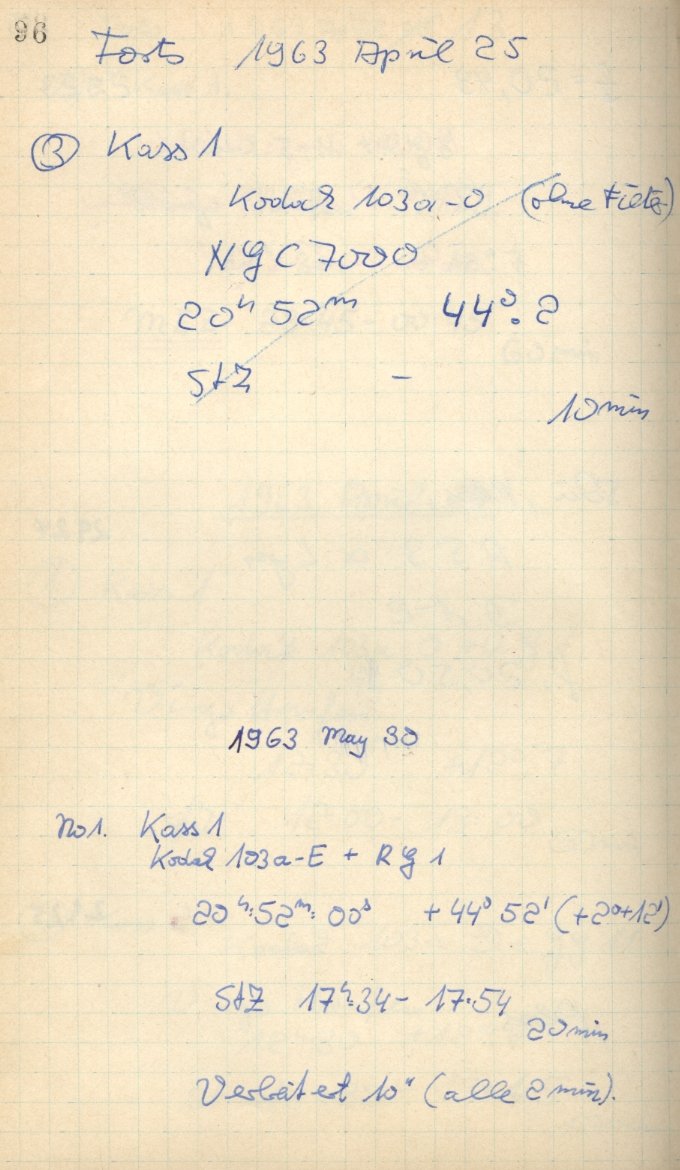 96
Forts 1963 April 25
③ Kass 1
Kodak 103a-O (ohne Filter)
NGC 7000
20h 52m 44°.2
StZ -
10 min
1963 May 30
No 1. Kass 1
Kodak 103a-E + RG 1
20h: 52m: 00s +44° 52' (+2°+12')
StZ 17h:34 - 17:54
20 min
10" (alle 2 min).